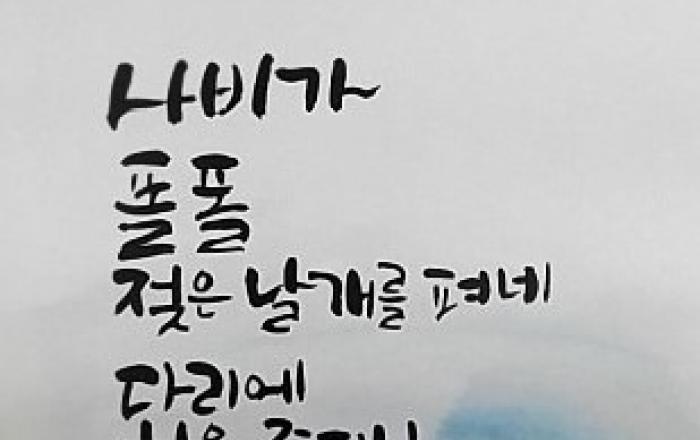 나비가
폴폴
젖은 날개를 펴네
다리에